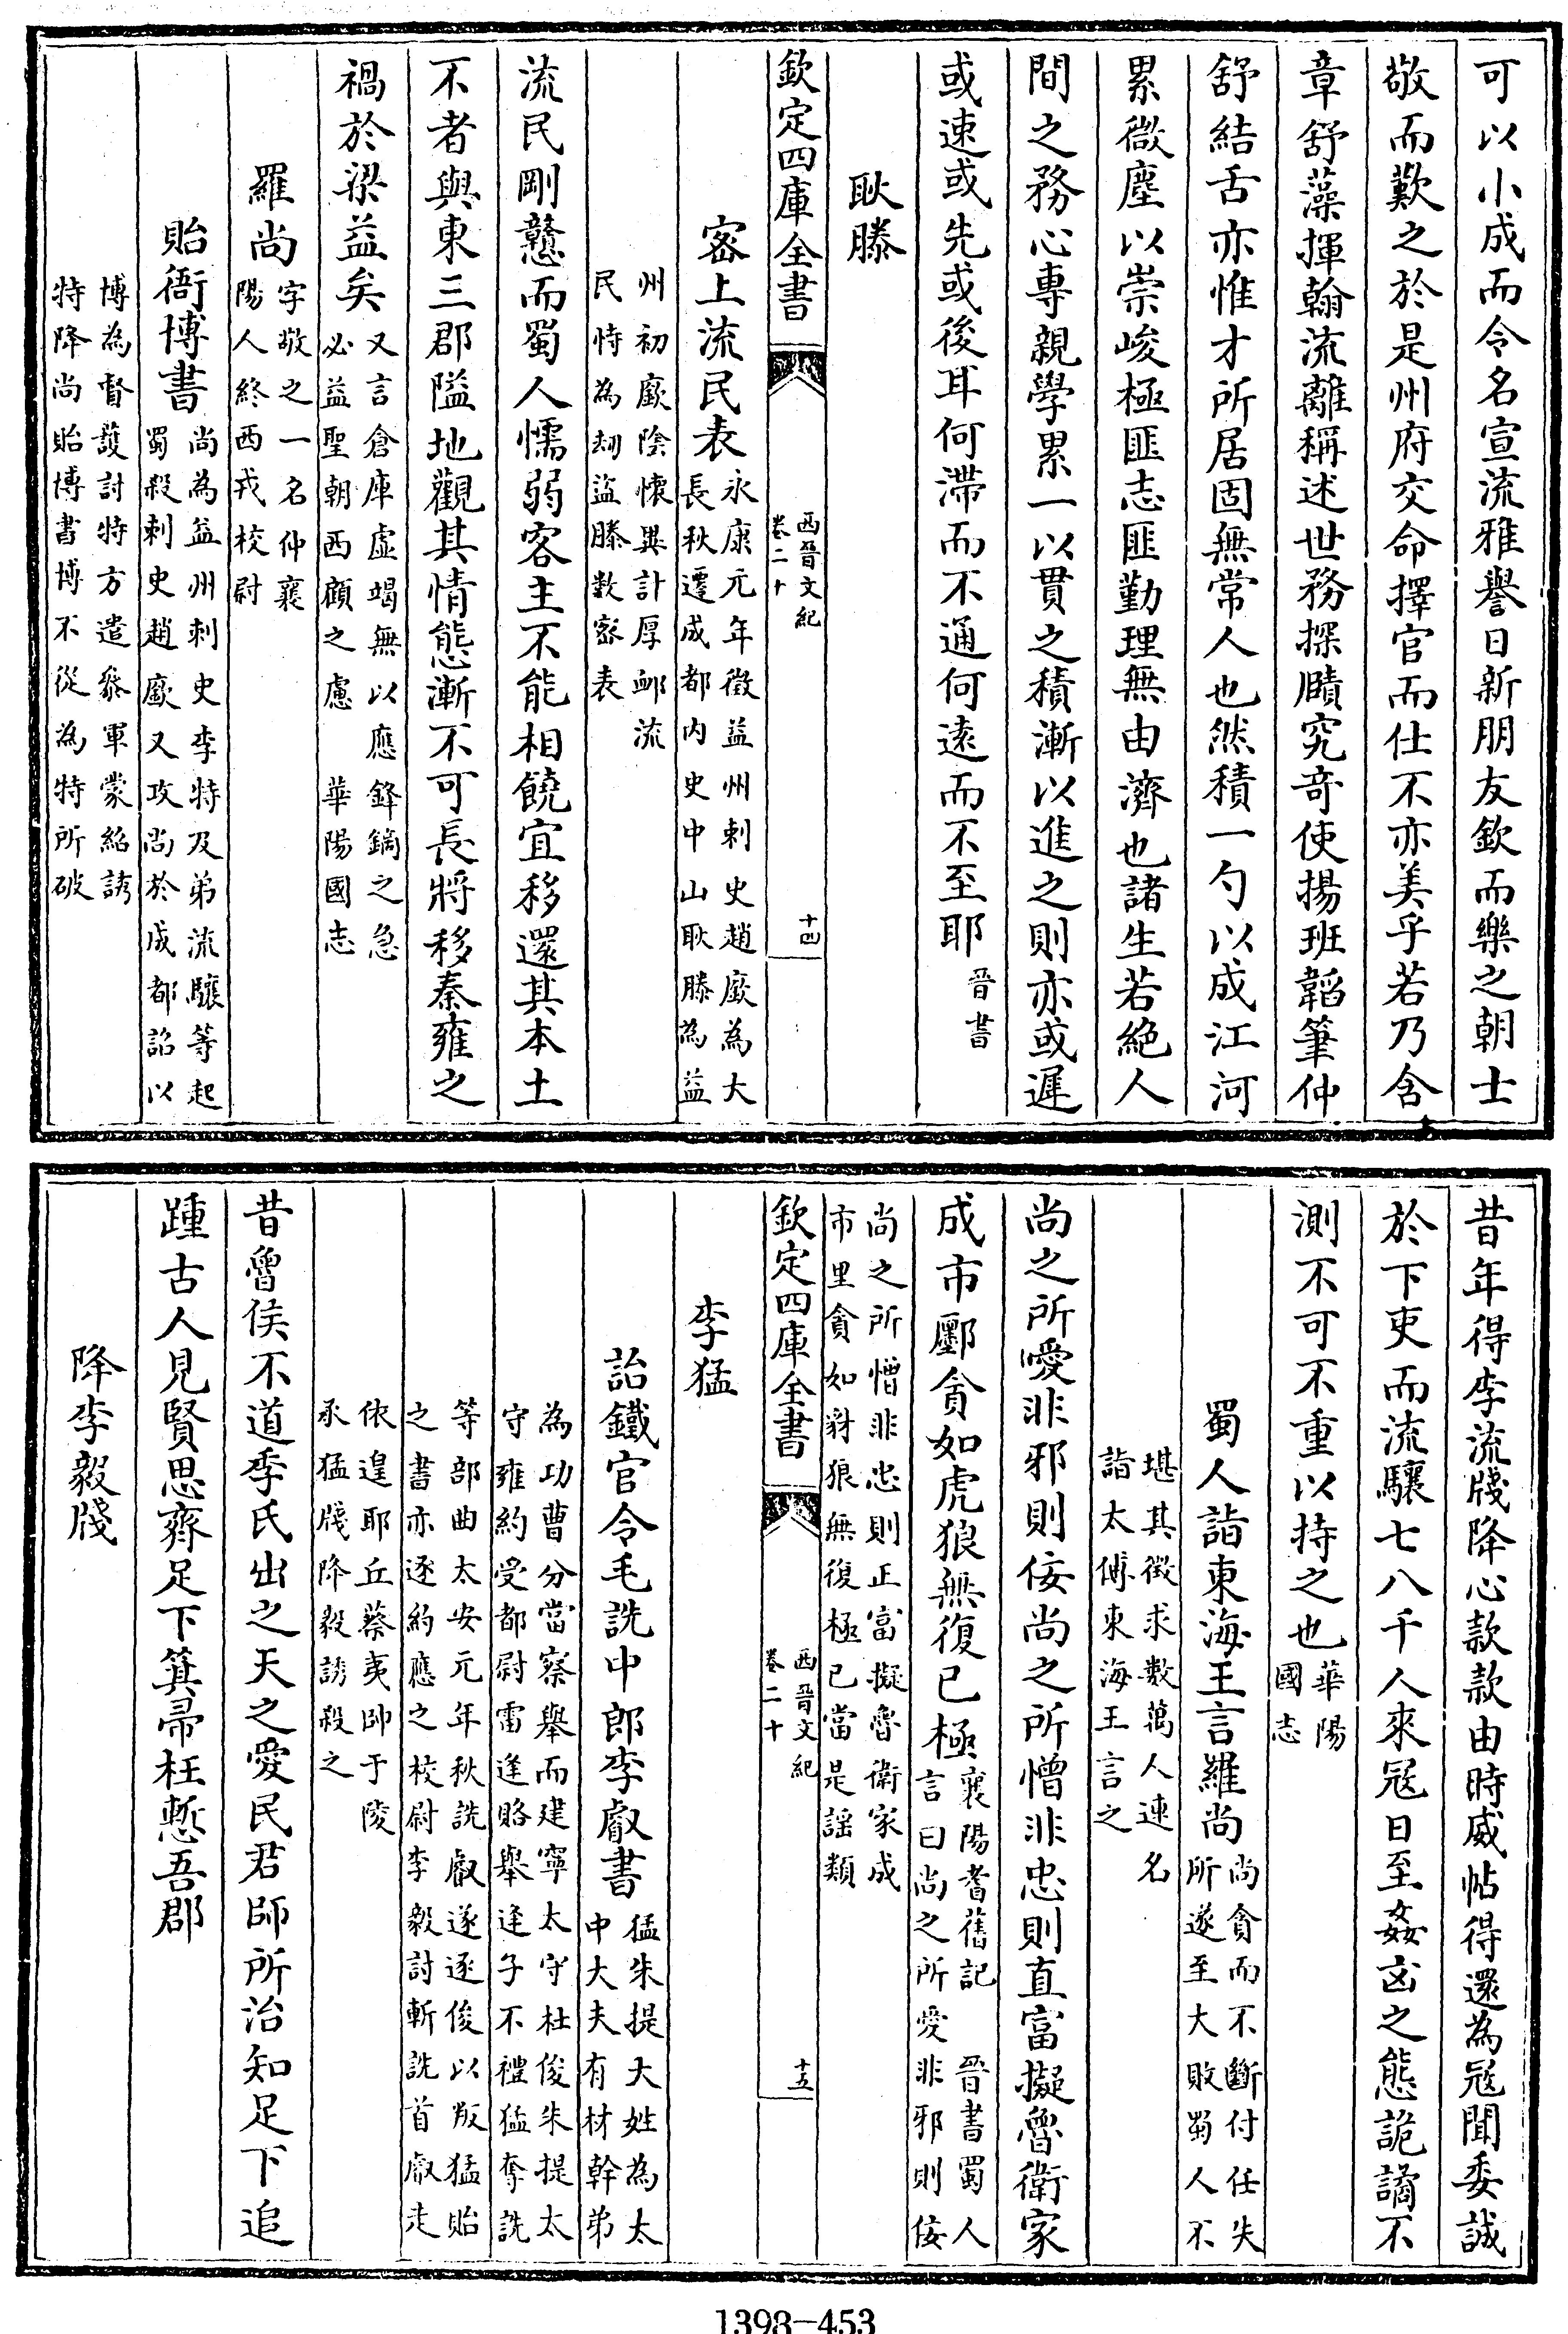 可以小成而令名宣流雅譽日新朋友欽而樂之朝士
敬而歎之於是州府交命擇官而仕不亦美乎若乃含
章舒藻揮翰流離稱述世務探賾究竒使揚班韜筆仲
舒結舌亦惟才所居固無常人也然積一勺以成江河
累微塵以崇峻極匪志匪勤理無由濟也諸生若絶人
間之務心專親學累一以貫之積漸以進之則亦或遲
或速或先或後耳何滯而不通何逺而不至耶晉書
耿滕
欽定四庫全書
西晉文紀
卷二十
十四
宻上流民表永康元年徴益州刺史趙廞為大
長秋遷成都内史中山耿滕為益
州初廞隂懐異計厚䘏流
民恃為刼盜滕數宻表
流民剛戇而蜀人懦弱客主不能相饒宜移還其本土
不者與東三郡隘地觀其情態漸不可長將移秦雍之
禍於梁益矣又言倉庫虛竭無以應鋒鏑之急
必益聖朝西顧之慮 華陽國志
羅尚字敬之一名仲襄
陽人終西戎校尉
貽衙博書尚為益州刺史李特及弟流驤等起
蜀殺刺史趙廞又攻尚於成都詔以
博為督䕶討特方遣叅軍蒙紹誘
特降尚貽博書博不從為特所破
昔年得李流牋降心款款由時威帖得還為冦聞委誠
於下吏而流驤七八千人來冦日至姦宄之態詭譎不
測不可不重以持之也華陽
國志
蜀人詣東海王言羅尚尚貪而不斷付任失
所遂至大敗蜀人不
堪其徴求數萬人連名
詣太傅東海王言之
尚之所愛非邪則佞尚之所憎非忠則直富擬魯衛家
成市廛貪如虎狼無復已極襄陽耆舊記 晉書蜀人
言曰尚之所愛非邪則佞
尚之所憎非忠則正富擬魯衛家成
市里貪如豺狼無復極已當是謡類
欽定四庫全書
西晉文紀
卷二十
十五
李猛
詒鐵官令毛詵中郎李叡書猛朱提大姓為太
中大夫有材幹弟
為功曹分當察舉而建寧太守杜俊朱提太
守雍約受都尉雷逢賂舉逢子不禮猛奪詵
等部曲太安元年秋詵叡遂逐俊以叛猛貽
之書亦逐約應之校尉李毅討斬詵首叡走
依遑耶丘蔡夷帥于陵
承猛牋降毅誘殺之
昔魯侯不道季氏出之天之愛民君師所治知足下追
踵古人見賢思齊足下箕帚枉慙吾郡
降李毅牋
1398-453